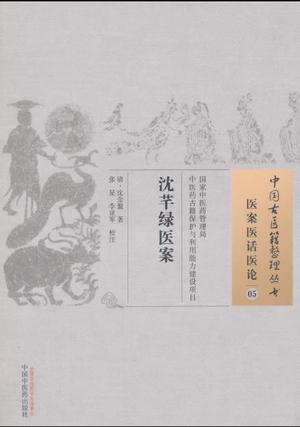 中国古医籍整理丛书
医案医话医论
05
国家中医药管理局
中医药古籍保护与利用能力建设项目
沈芊绿医案
清·沈金鳌 著
张星 李亚军 校注
中国中医药出版社